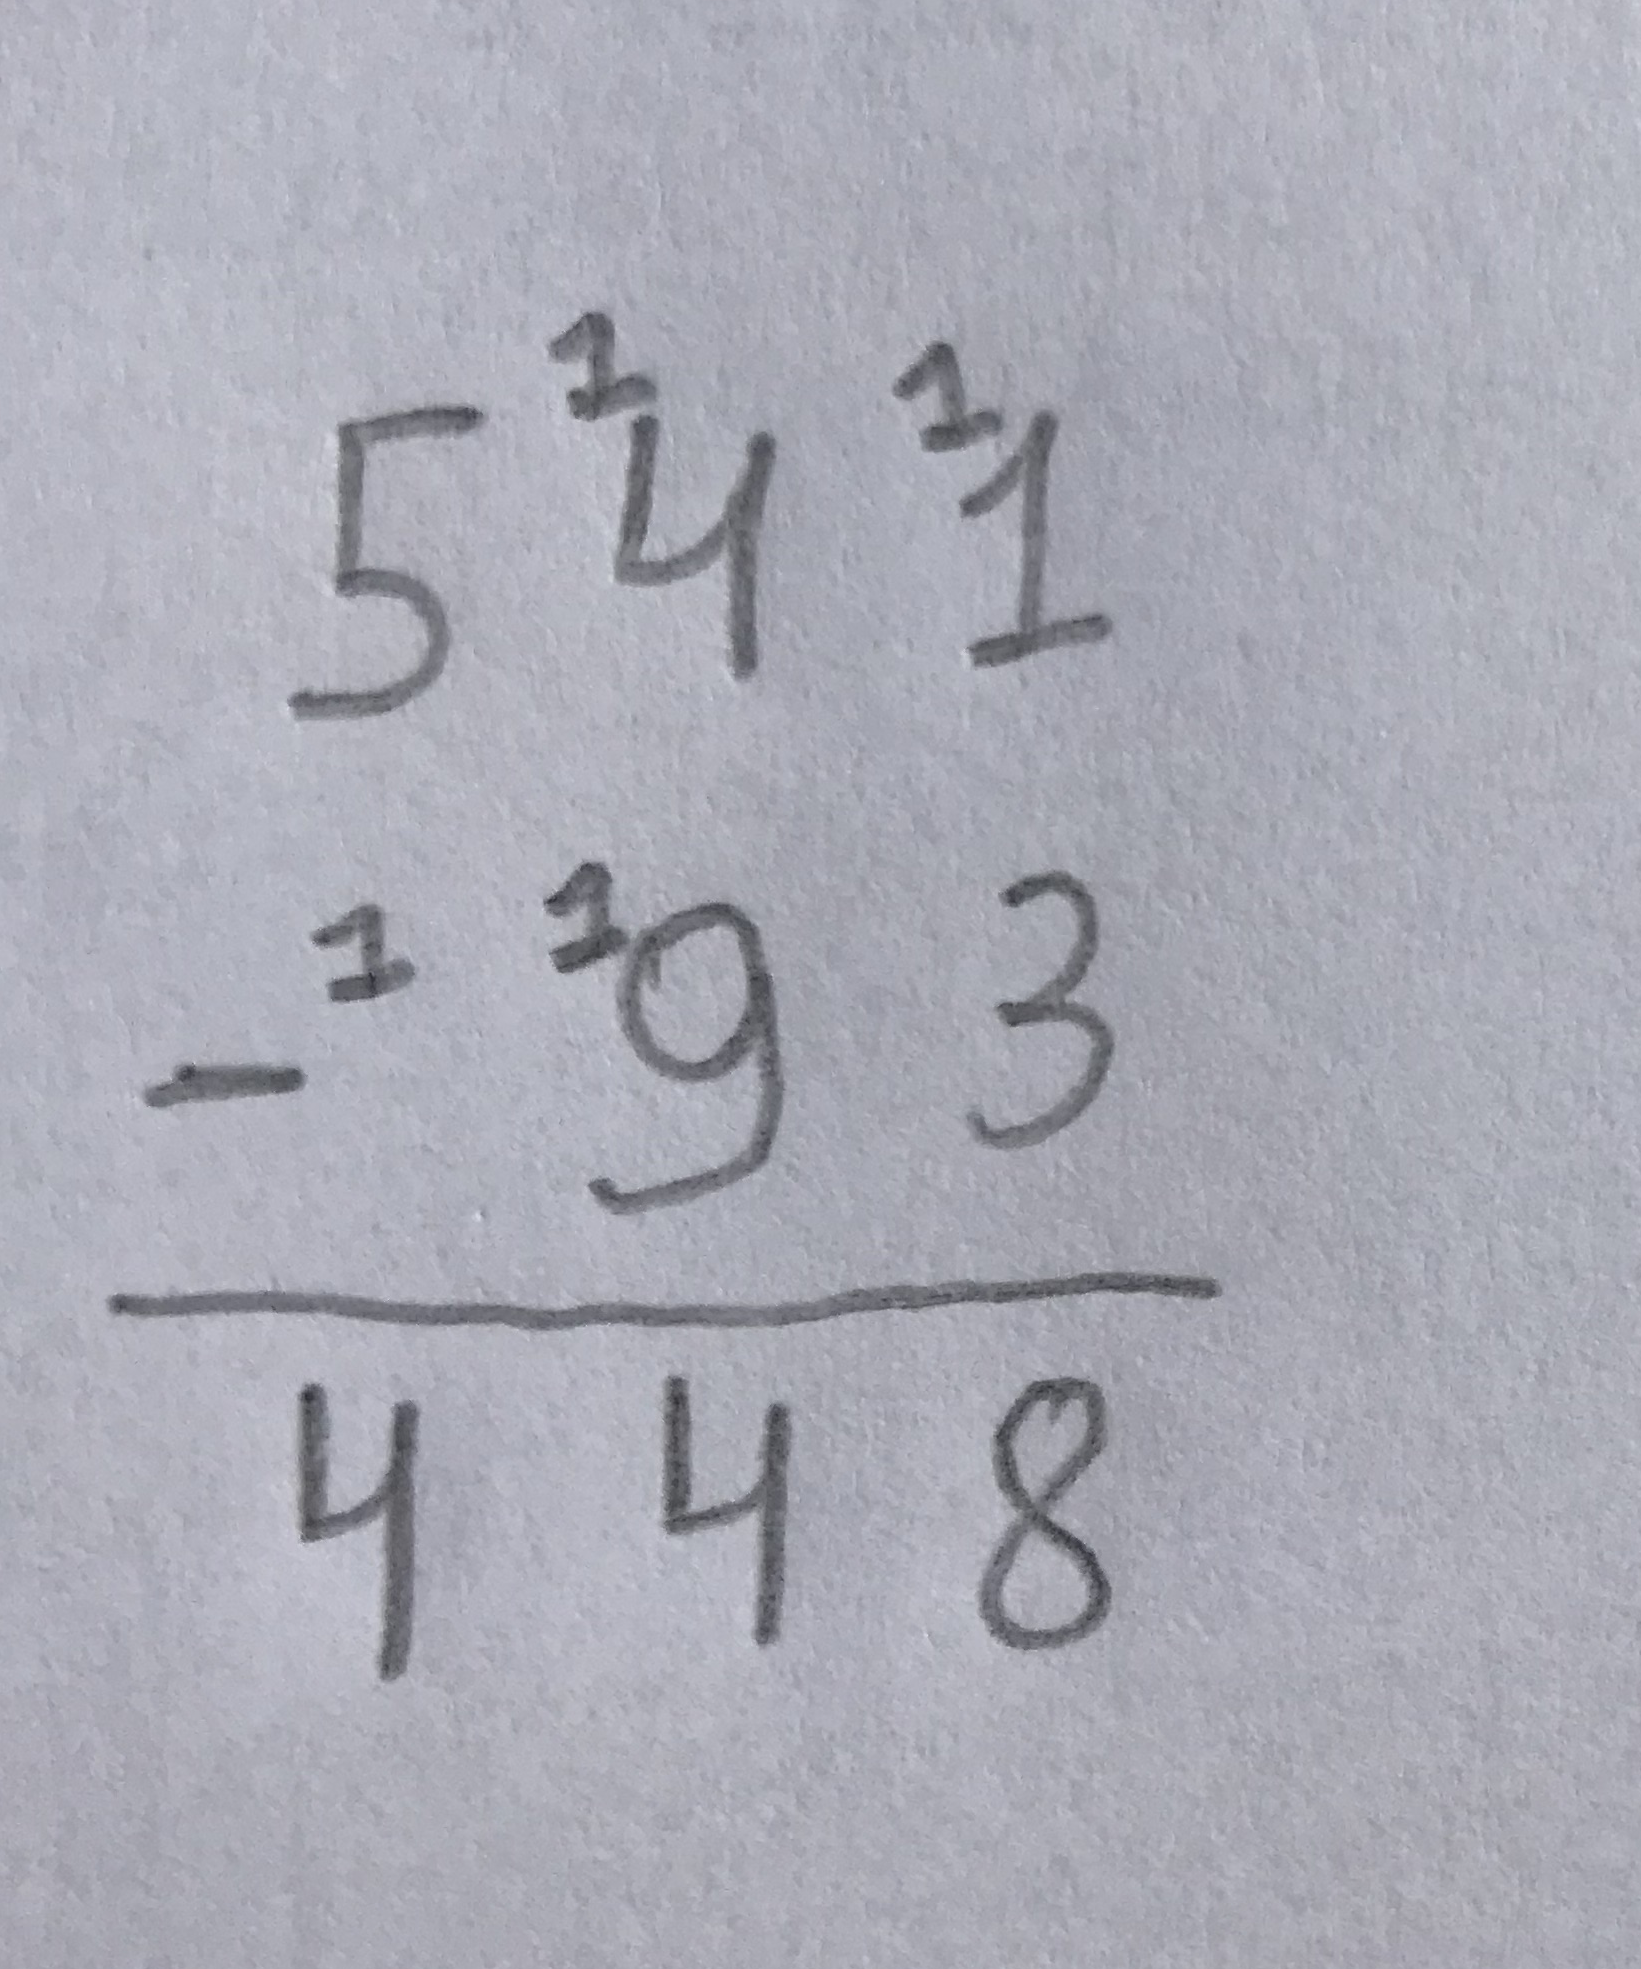 5 ¹4 ¹1
- ¹ ¹9 3
4 4 8